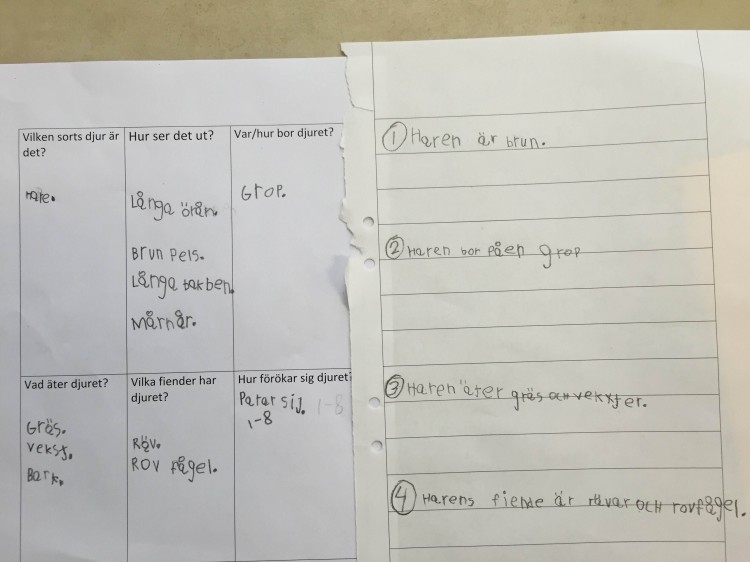 Vilken sorts djur är
det?
Hare.
Hur ser det ut?
Långa örån.
Brun Pels.
Långa bakben.
Mårhår.
Var/hur bor djuret?
Grop.
Vad äter djuret?
Gräs.
vekst.
Bark.
Vilka fiender har
djuret?
Räv.
ROV fågel.
Hur förökar sig djuret?
Parar sij. 1-8
1-8
1 Haren är brun.
2 Haren bor påen grop
3 Haren äter gräs och vekxter.
4 Harens fiende är rävar OCH rovfågel.